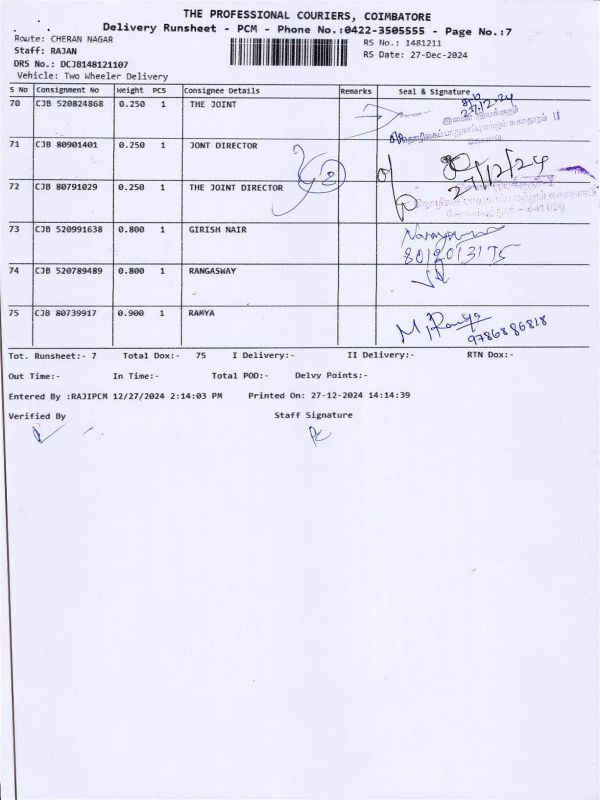 THE PROFESSIONAL COURIERS, COIMBATORE
Delivery Runsheet - PCM - Phone No.:0422-3505555 - Page No.:7
Route: CHERAN NAGAR RS No.: 1481211
Staff: RAJAN RS Date: 27-Dec-2024
DRS No.: DCJB148121107
Vehicle: Two Wheeler Delivery
S No Consignment No Weight PCS Consignee Details Remarks Seal & Signature
70 CJB 520824868 0.250 1 THE JOINT
27.12.24
71 CJB 80901401 0.250 1 JONT DIRECTOR
27/12/24
72 CJB 80791029 0.250 1 THE JOINT DIRECTOR
73 CJB 520991638 0.800 1 GIRISH NAIR
74 CJB 520789489 0.800 1 RANGASWAY
75 CJB 80739917 0.900 1 RAMYA
M. Ramya
9786886818
Tot. Runsheet:- 7 Total Dox:- 75 I Delivery:- II Delivery:- RTN Dox:-
Out Time:- In Time:- Total POD:- Delvy Points:-
Entered By :RAJIPCM 12/27/2024 2:14:03 PM Printed On: 27-12-2024 14:14:39
Verified By Staff Signature